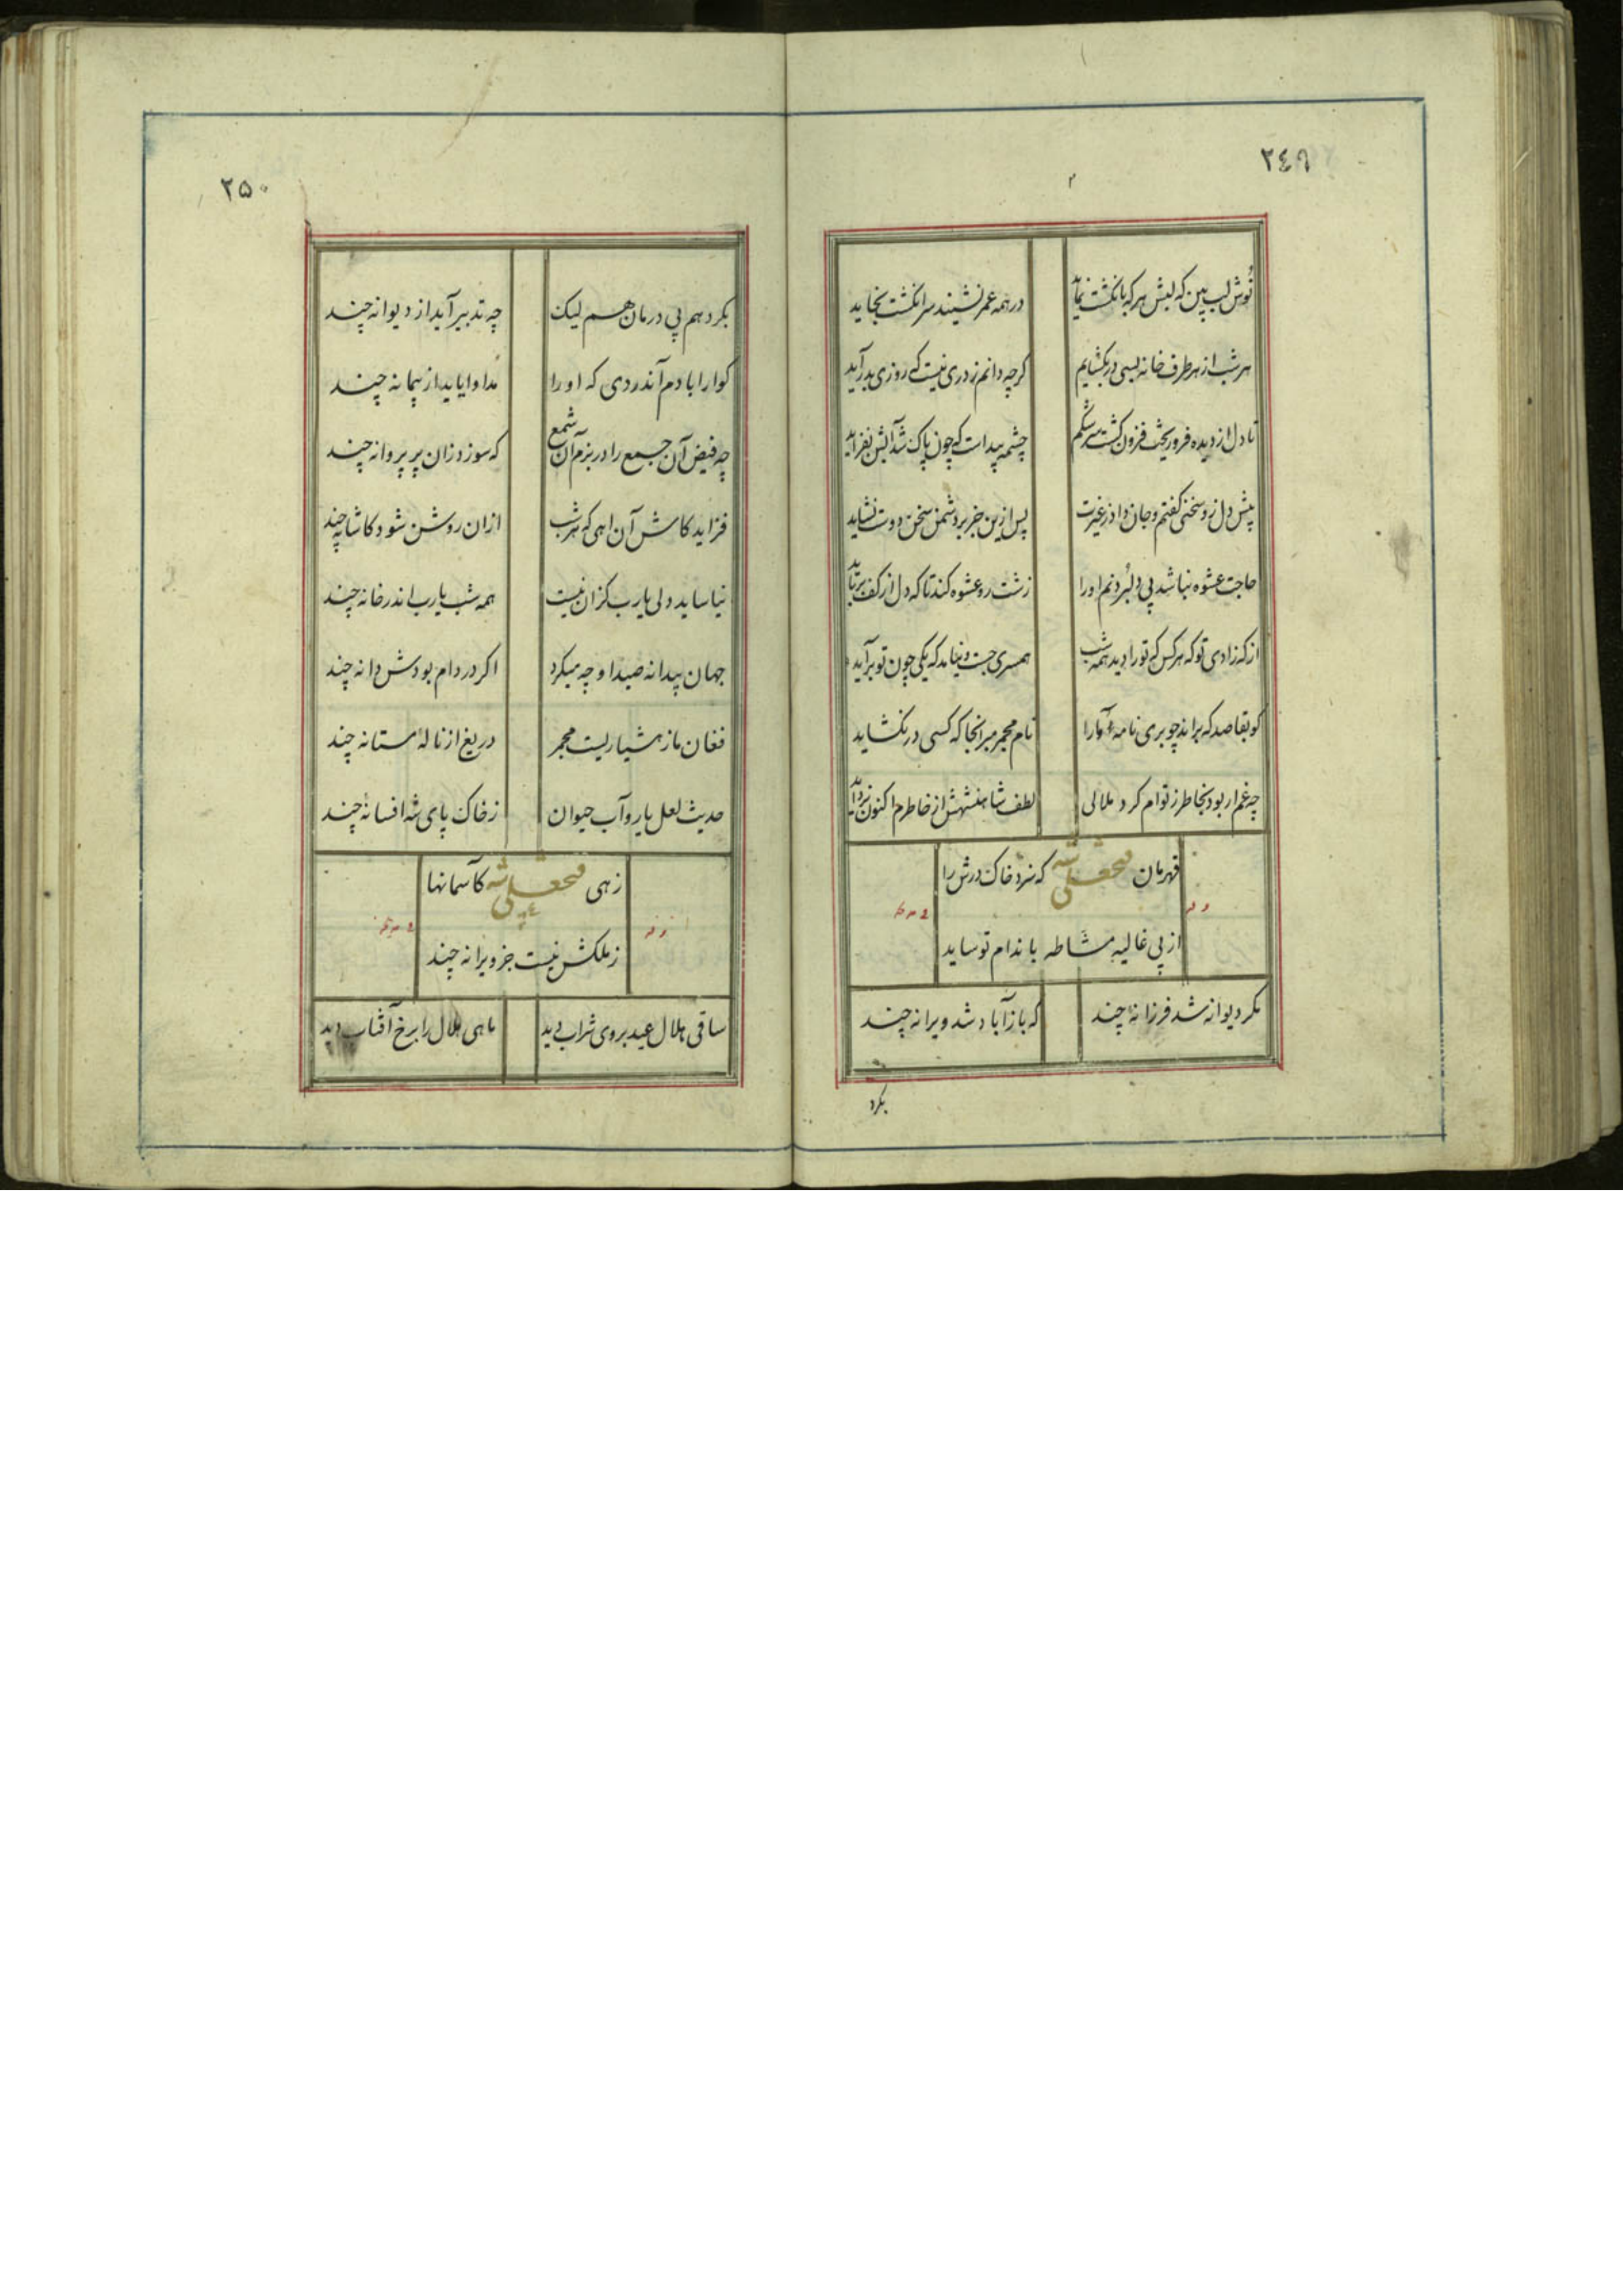 ۲۴۹
نوش لب بین که لبش هر که بانگشت نماید
در همه عمر نشیند سر انگشت بخاید
هر شب از هر طرف خانه بسی در بگشایم
کرچه دانم ز دری نیست که روزی بدر آید
تا دل از دیده فرو ریخت فزون کشت سرشکم
چشمه پیداست که چون پاک شد آبش بفزاید
پیش دل زو سخنی کفتم و جان داد ز غیرت
پس ازین جز بر دشمن سخن دوست نشاید
حاجت عشوه نباشد پی دلبردنم او را
زشت رو عشوه کند تا که دل از کف برباید
از که زادی تو که هر کس که تو را دید همه شب
همسری جست و نیامد که یکی چون تو برآید
کو بقاصد که براند چو بری نامهٔ ما را
نام مجمر مبر انجا که کسی در نکشاید
چه غم ار بود بخاطر ز توام کرد ملالی
لطف شاهنشهش از خاطرم اکنون بزداید
قهرمان فتحعلی شه که سزد خاک درش را
از پی غالیه مشاطه باندام تو ساید
مکر دیوانه شد فرزانهٔ چند
که باز آباد شد ویرانه چند
بکرد
۲۵۰
بکردهم پی درمان هم لیک
چه تدبیر آید از دیوانه چند
کوارا بادم آندردی که او را
مداوا باید از پیمانه چند
چه فیض آن جمع را در بزم آن شمع
که سوزد زان پر پروانه چند
فزاید کاش آن ماهی که هر شب
ازان روشن شود کاشانه چند
نیاساید دلی یارب کزان نیست
همه شب یارب اندر خانه چند
جهان پیدا نه صیداو چه میکرد
اکر در دام بودش دانه چند
فغان ما ز هشیاریست مجمر
دریغ از نالهٔ مستانه چند
حدیث لعل یار و آب حیوان
ز خاک پای شه افسانهٔ چند
زهی فتحعلی شه کآسمانها
ز ملکش نیست جز ویرانه چند
ساقی هلال عید بروی شراب دید
ماهی هلال را برخ آفتاب دید